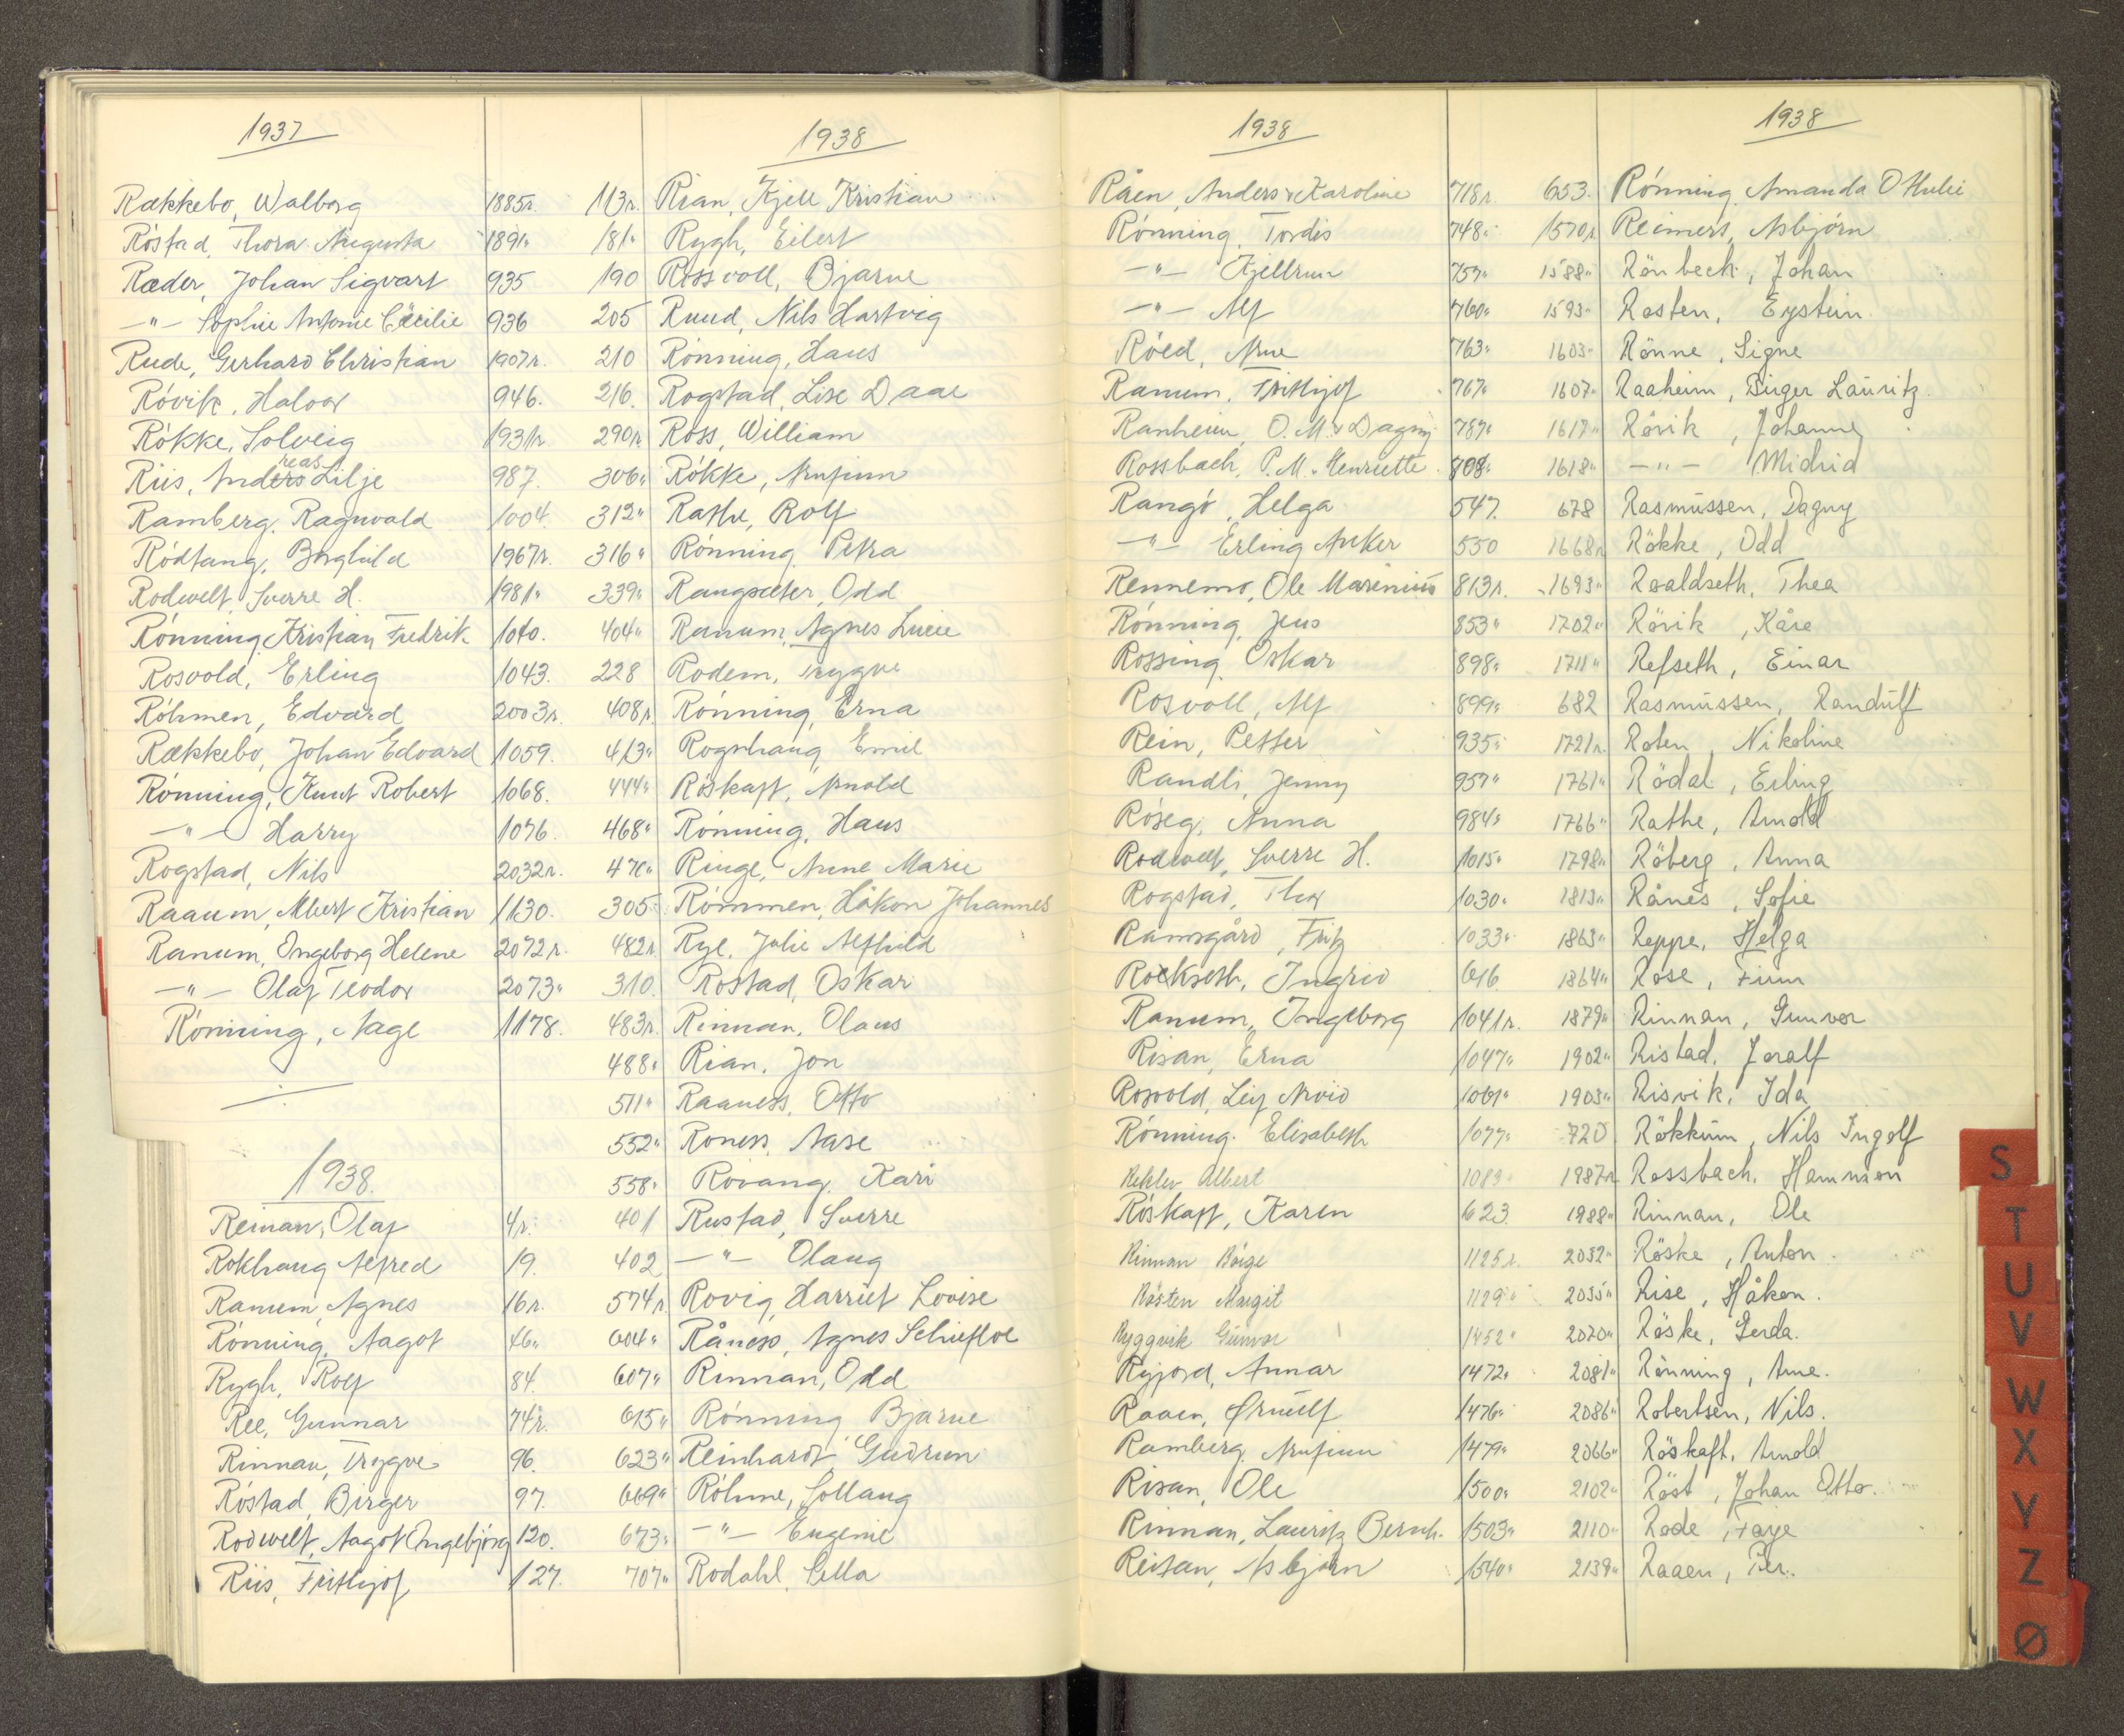 1937
Rækkebo, Walborg 1885r.
Röstad, Thora Augusta 1891"
Ræder, Johan Sigvart 935
—"— Sophie Antonie Cecilie 936
Rude, Gerhard Christian 1907r.
Rövik, Halvor 946.
Rökke, Solveig 1931r
Riis, Andreas Lilje 987.
Ramberg, Ragnvald 1004.
Rödtang, Borghild 1967r.
Rodwelt, Sverre H. 1981"
Rönning, Kristian Fredrik 1040.
Rosvold, Erling 1043.
Röhmen, Edvard 2003r.
Rækkebo, Johan Edvard 1059.
Rönning, Knut Robert 1068.
—"— Harry 1076.
Rogstad, Nils 2032r.
Raaum, Albert Kristian 1130.
Ranum, Ingeborg Helene 2072r.
—"— Olaf Teodor 2073"
Rönning, Aage 1178.
1938.
Reinan, Olaf 4r.
Rokhaug Alfred 19.
Ranum, Agnes 16r.
Rönning, Aagot 46"
Rygh, Rolf 84.
Ree, Gunnar 74r.
Rinnan, Trygve 96.
Röstad, Birger 97.
Rodwelt, Aagot Ingebjörg 120.
Riis, Frithjof 127.
1938
113r. Rian, Kjell Kristian
181" Rygh, Eilert
190 Rossvoll, Bjarne
205 Ruud, Nils Hartvig
210 Rönning, Hans
216. Rogstad, Lise Daae
290r Ross, William
306" Rökke, Arnfinn
312" Rathe, Rolf
316" Rönning Petra
339" Rangsæter, Odd
404" Ranum, Agnes Lucie
228 Rodem, Trygve
408r. Rönning, Erna
413" Rognhaug Emil
444" Röskaft, Arnold
468" Rönning, Hans
470" Ringe, Anne Marie
305 Römmen, Håkon Johannes
482r. Rye, Julie Alfhild
310. Rostad, Oskar
483r. Rinnan, Olaus
488" Rian, Jon
511" Raaness, Otto
552" Roness, Aase
558" Rövang, Kari
401 Rustad, Sverre
402 —"— Olaug
574r Rovig, Harriet Lovise
604" Råness, Agnes Schiefloe
607" Rinnan, Odd
615" Rönning Bjarne
623" Reinhardt, Gudrun
669" Röhme, Sollaug
673" —"— Eugenie
707" Rodahl, Lella
1938
Råen, Anders & Karoline 718r.
Rönning, Tordis 748"
—"— Kjellrun 757"
—"— Alf 760"
Röed, Arne 763"
Ranum, Frithjof 767"
Ranheim, O. M. & Dagny 787"
Rossbach, P. M. & Henriette 808"
Rangö, Helga 547.
—"— Erling Anker 550
Rennemo, Ole Marenius 813r.
Rönning, Jens 853"
Rossing, Oskar 898"
Rosvoll, Alf 899"
Rein, Petter 935"
Randli, Jenny 957"
Röseg, Anna 984"
Rodwelt, Sverre H. 1015"
Rogstad, Thor 1030"
Ramsgård, Fritz 1033"
Roekseth, Ingrid 616.
Ranum, Ingeborg 1041r.
Risan, Erna 1047"
Rosvold, Leif Arvid 1061"
Rönning, Elisabeth 1077"
Rekler Albert 1083"
Röskaft, Karen 623.
Rinnan Börge 1125r.
Rösten Margit 1129"
Ryggvik Gunvor 1452"
Ryjord, Annar 1472"
Raaen, Ørnulf 1476"
Ramberg, Arnfinn 1479"
Risan, Ole 1500"
Rinnan, Lauritz Bernh. 1503"
Reitan, Asbjörn 1540"
1938
653. Rönning, Amanda Othilie
1570r Reimers, Asbjørn
1588" Rönbeck, Johan
1593" Rosten, Eystein
1603" Rönne, Signe
1607" Raaheim, Birger Lauritz
1617" Rövik, Johanne
1618" —"— Midrid
678 Rasmussen, Dagny
1668r Rökke, Odd
1693" Roaldseth, Thea
1702" Rövik, Kåre
1711" Refseth, Einar
682 Rasmussen, Randulf
1721r. Roten, Nikoline
1761" Rödal, Erling
1766" Rathe, Arnold
1798" Röberg, Anna
1813" Rånes, Sofie
1863" Reppe, Helga
1864" Rose, Finn
1879" Rinnan, Gunvor
1902" Ristad, Joralf
1903" Risvik, Ida
720 Rökkum, Nils Ingolf
1987r Rossbach, Hammon
1988" Rinnan, Ole
2032" Röske, Anton.
2035" Rise, Håkon.
2070" Röske, Gerda.
2081" Rönning, Arne.
2086" Robertsen, Nils.
2066" Röskaft, Arnold
2102" Röst, Johan Otto.
2110" Rode, Faye
2139" Raaen, Per.
S
T
U
V
W
X
Y
Z
Ø